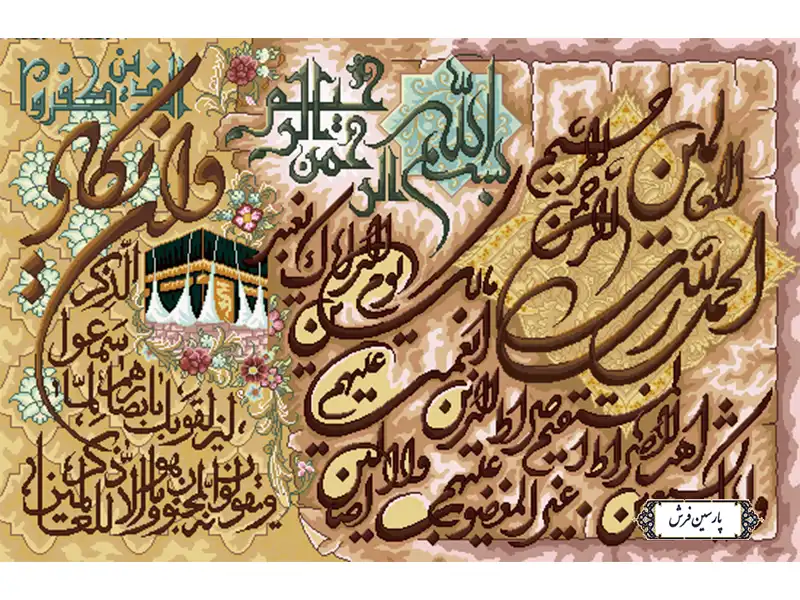 بسم الله الرحمن الرحیم
الحمد لله رب العالمین
الرحمن الرحیم
مالک یوم الدین
ایاک نعبد
وایاک نستعین
اهدنا الصراط المستقیم
صراط الذین انعمت علیهم
غیر المغضوب علیهم
ولا الضالین
وان یکاد الذین کفروا
لیزلقونک بابصارهم لما
سمعوا الذکر
ویقولون انه لمجنون
وما هو الا ذکر للعالمین
پارسین فرش